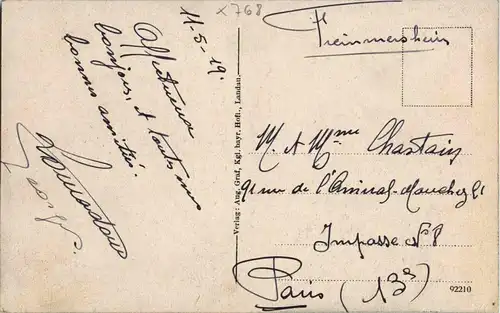 x768
11-5-19.
Affectueux
bonjour, et toutes mes
bonnes amitiés.
Georges
Verlag: Aug. Graf, Kgl. bayr. Hofl., Landau.
Freimersheim
M. et Mme Chastain
91 rue de l'Amiral-Mouchez 91
Impasse No 8
Paris (13e)
92210